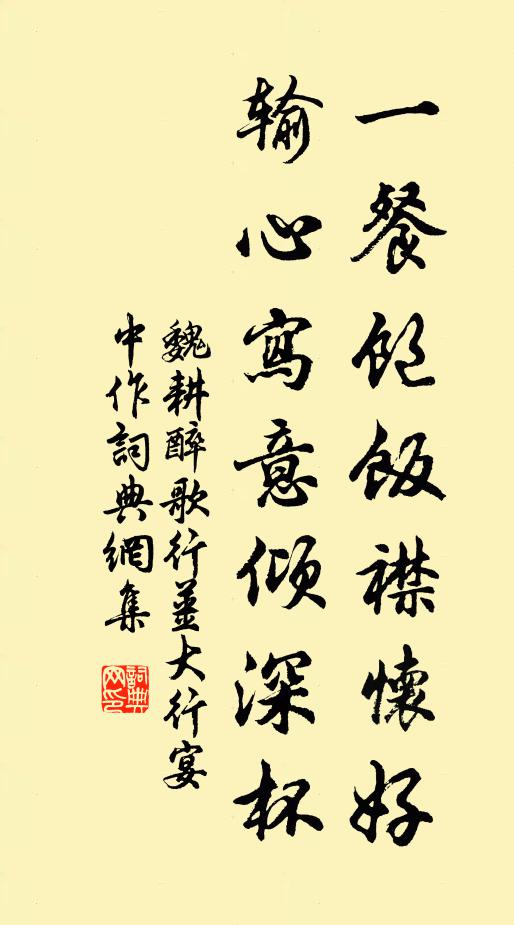 一餐飽飯襟懷好
輸心寫意傾深杯
魏耕醉歌行薑大行宴
中作詞典網集
詞典
网印